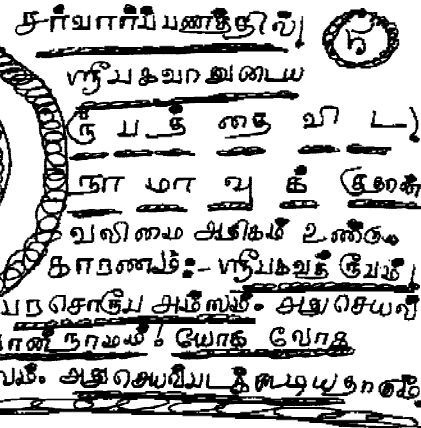 சர்வார்ப்பணத்தில் 5
ஸ்ரீபகவானுடைய
ரூபத்தை விட
நாமாவுக் குதான்
வலிமை அதிகம் உண்டு.
காரணம்:- ஸ்ரீபகவத் ரூபம்
அம்ஸம். அது செயல்
நாமம்! யோக
அது செயல்படக்கூடியதாகும்